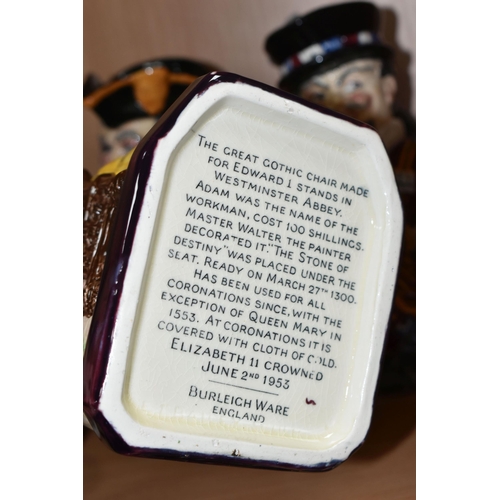 THE GREAT GOTHIC CHAIR MADE
FOR EDWARD 1 STANDS IN
WESTMINSTER ABBEY.
ADAM WAS THE NAME OF THE
WORKMAN, COST 100 SHILLINGS.
MASTER WALTER THE PAINTER
DECORATED IT. "THE STONE OF
DESTINY" WAS PLACED UNDER THE
SEAT. READY ON MARCH 27TH 1300.
HAS BEEN USED FOR ALL
CORONATIONS SINCE, WITH THE
EXCEPTION OF QUEEN MARY IN
1553. AT CORONATIONS IT IS
COVERED WITH CLOTH OF GOLD.
ELIZABETH 11 CROWNED
JUNE 2ND 1953
BURLEIGH WARE
ENGLAND